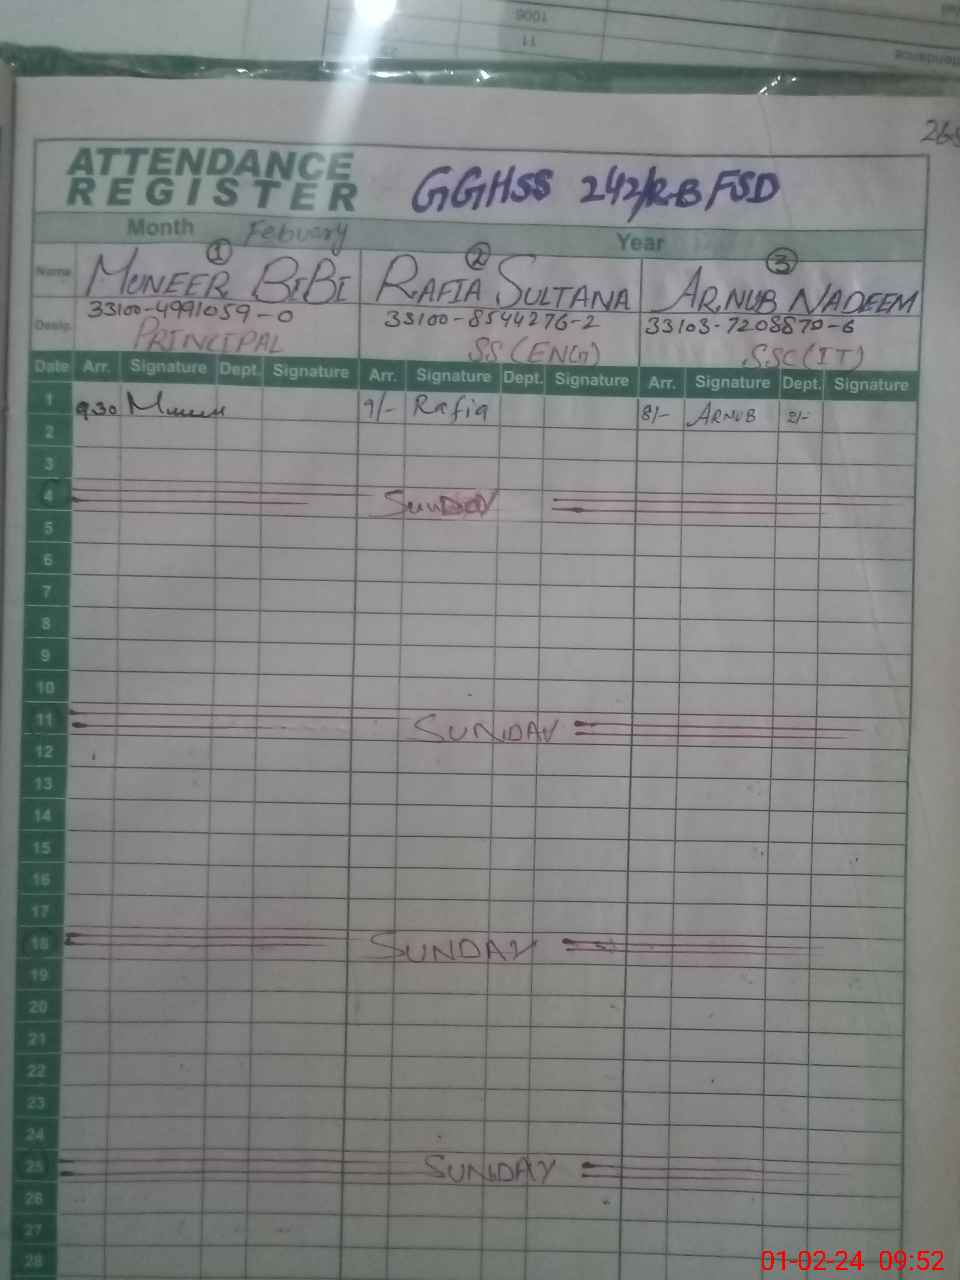 1006
11
ATTENDANCE
REGISTER
GGHSS 242/RB FSD
Month Febuary Year
1 2 3
Name MUNEER BIBI RAFIA SULTANA ARNUB NADEEM
33100-4991059-0 33100-8544276-2 33103-7208870-6
Desig. PRINCIPAL SS (ENG) SSC (IT)
Date Arr. Signature Dept. Signature Arr. Signature Dept. Signature Arr. Signature Dept. Signature
1 9.30 Muneer 9/- Rafia 8/- ARNUB 2/-
2
3
4 SUNDAY
5
6
7
8
9
10
11 SUNDAY
12
13
14
15
16
17
18 SUNDAY
19
20
21
22
23
24
25 SUNDAY
26
27
28
01-02-24 09:52